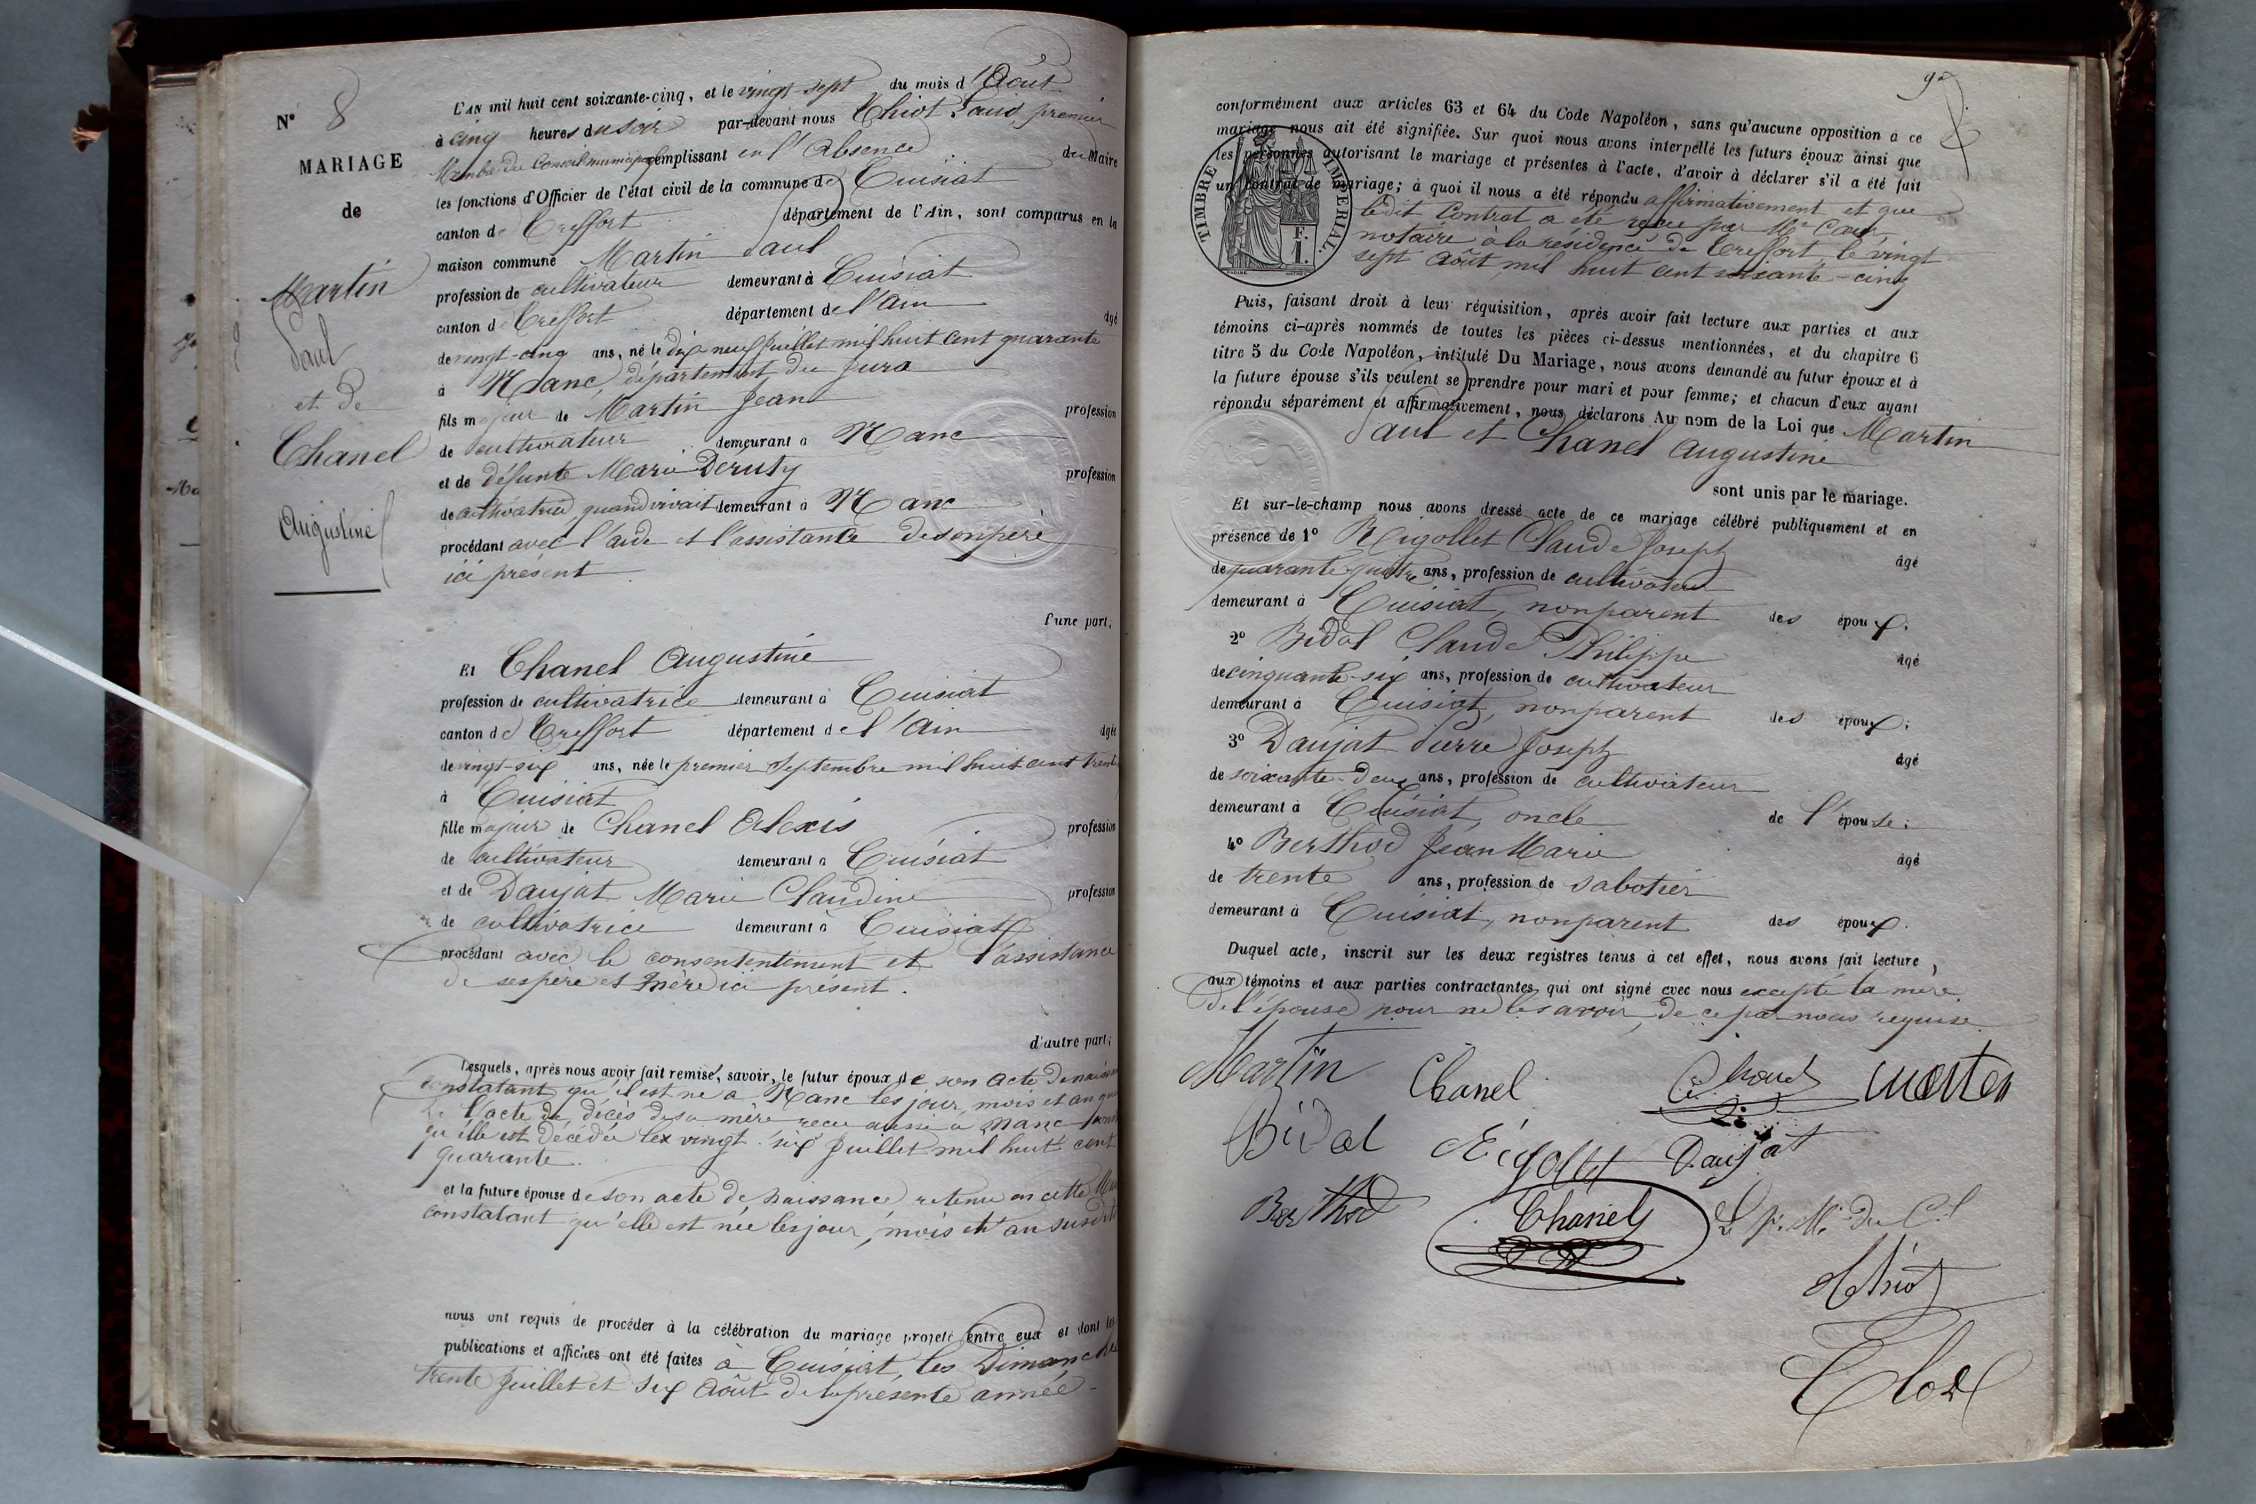 N° 8
MARIAGE
de
Martin
Paul
et de
Chanel
Augustine
L'AN mil huit cent soixante-cinq, et le vingt sept du mois d'Août
à cinq heures du soir par-devant nous Thiot Paul, premier
Membre du Conseil municipal remplissant en l'absence du Maire
les fonctions d'Officier de l'état civil de la commune de Cuisiat
canton de Treffort département de l'Ain, sont comparus en la
maison commune Martin Paul
profession de cultivateur demeurant à Cuisiat
canton de Treffort département de l'Ain âgé
de vingt-cinq ans, né le dix neuf Juillet mil huit cent quarante
à Nanc, département du Jura
fils majeur de Martin Jean profession
de cultivateur demeurant à Nanc
et de défunte Marie Déruty profession
de cultivatrice quand vivait demeurant à Nanc
procédant avec l'aide et l'assistance de son père
ici présent
d'une part;
Et Chanel Augustine
profession de cultivatrice demeurant à Cuisiat
canton de Treffort département de l'Ain âgée
de vingt-six ans, née le premier Septembre mil huit cent trente
à Cuisiat
fille majeur de Chanel Alexis profession
de cultivateur demeurant à Cuisiat
et de Daujat Marie Claudine profession
de cultivatrice demeurant à Cuisiat
procédant avec le consententement et l'assistance
de ses père et mère ici présent.
d'autre part;
Lesquels, après nous avoir fait remise, savoir, le futur époux de son acte de naissance
constatant qu'il est né à Nanc les jour, mois et an que
l'acte de décès de sa mère reçu aussi à Nanc
qu'elle est décédée le vingt six Juillet mil huit cent
quarante.
et la future épouse de son acte de naissance retenu en cette
constatant qu'elle est née les jour, mois et an susdit
nous ont requis de procéder à la célébration du mariage projeté entre eux et dont les
publications et affiches ont été faites à Cuisiat, les Dimanche
trente Juillet et six Août de la présente année
conformément aux articles 63 et 64 du Code Napoléon, sans qu'aucune opposition à ce
mariage nous ait été signifiée. Sur quoi nous avons interpellé les futurs époux ainsi que
les personnes autorisant le mariage et présentes à l'acte, d'avoir à déclarer s'il a été fait
un contrat de mariage; à quoi il nous a été répondu affirmativement et que
ledit Contrat a été reçue par Me
notaire à la résidence de Treffort le vingt
sept Août mil huit cent soixante-cinq
TIMBRE IMPERIAL.
Puis, faisant droit à leur réquisition, après avoir fait lecture aux parties et aux
témoins ci-après nommés de toutes les pièces ci-dessus mentionnées, et du chapitre 6
titre 5 du Code Napoléon, intitulé Du Mariage, nous avons demandé au futur époux et à
la future épouse s'ils veulent se prendre pour mari et pour femme; et chacun d'eux ayant
répondu séparément et affirmativement, nous déclarons Au nom de la Loi que Martin
Paul et Chanel Augustine
sont unis par le mariage.
Et sur-le-champ nous avons dressé acte de ce mariage célébré publiquement et en
présence de 1° Rigollet Claude Joseph âgé
de quarante quatre ans, profession de cultivateur
demeurant à Cuisiat, non parent des époux;
2° Bidal Claude Philippe âgé
de cinquante-six ans, profession de cultivateur
demeurant à Cuisiat, non parent des époux;
3° Daujat Pierre Joseph âgé
de soixante-deux ans, profession de cultivateur
demeurant à Cuisiat, oncle de l'épouse;
4° Berthod Jean Marie âgé
de trente ans, profession de sabotier
demeurant à Cuisiat, non parent des époux.
Duquel acte, inscrit sur les deux registres tenus à cet effet, nous avons fait lecture
aux témoins et aux parties contractantes qui ont signé avec nous excepté la mère
de l'épouse pour ne le savoir, de ce par nous requise.
Martin Chanel Marten
Bidal Rigollet Daujat
Berthod Chanel Le p. M. du C.l
Thiot